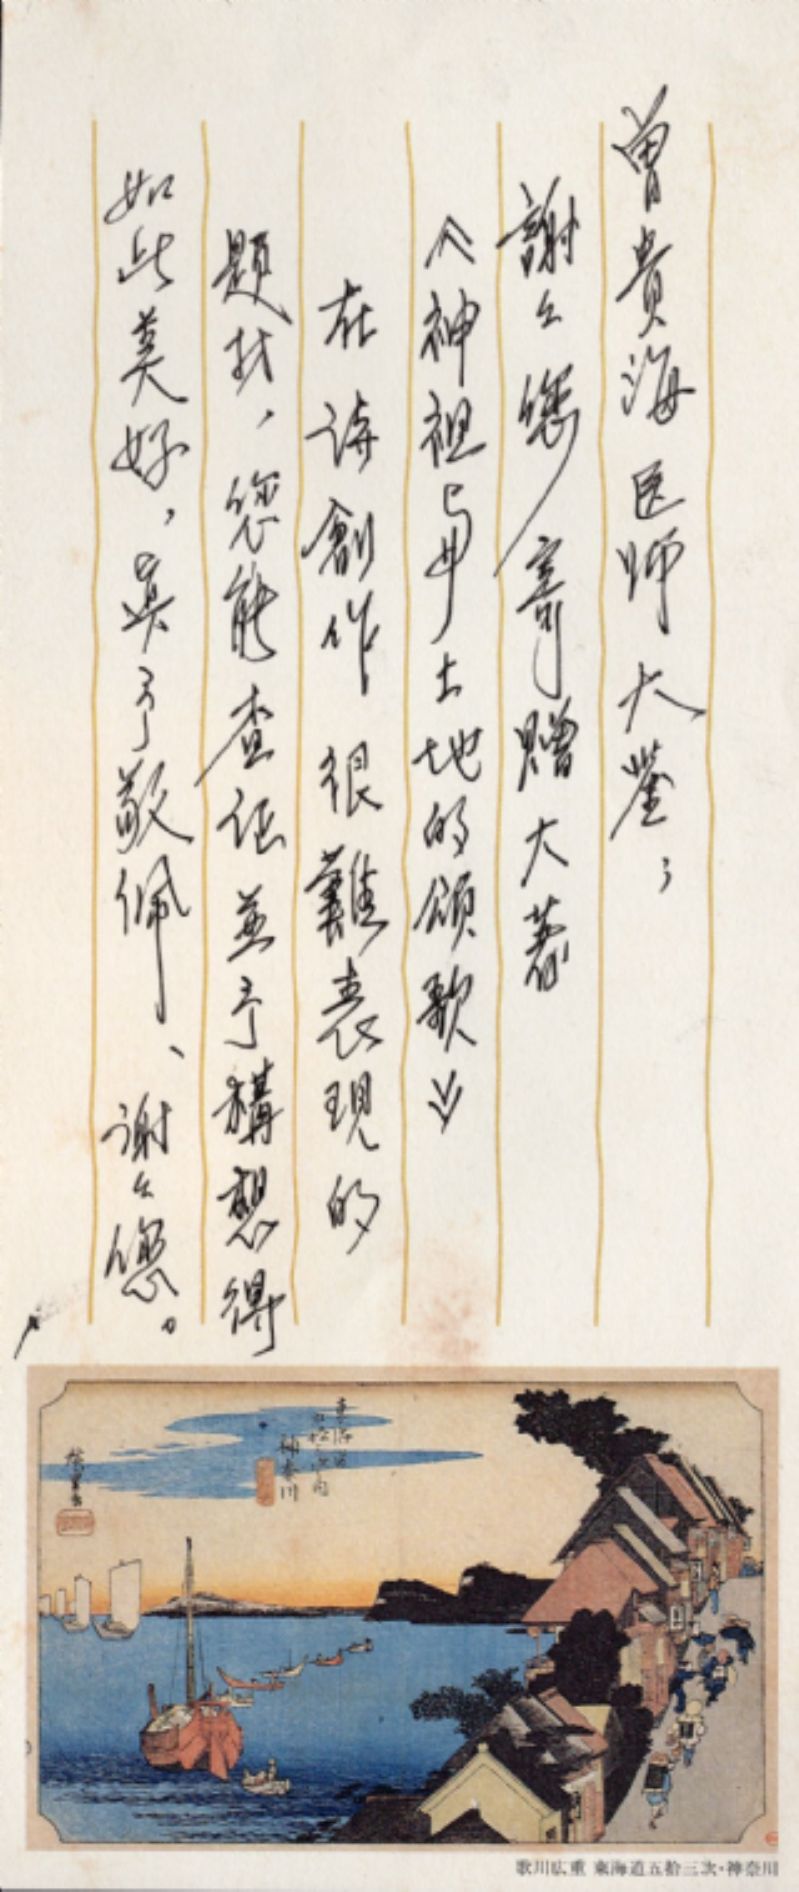 曾貴海医师大鑒：
謝々您寄贈大著
《神祖与母土地的頌歌》
在詩創作很難表現的
題材，您能查征並予構想得
如此美好，真予敬佩、謝々您。
東海道
五拾三次之内
神奈川
廣重画
歌川広重 東海道五拾三次・神奈川